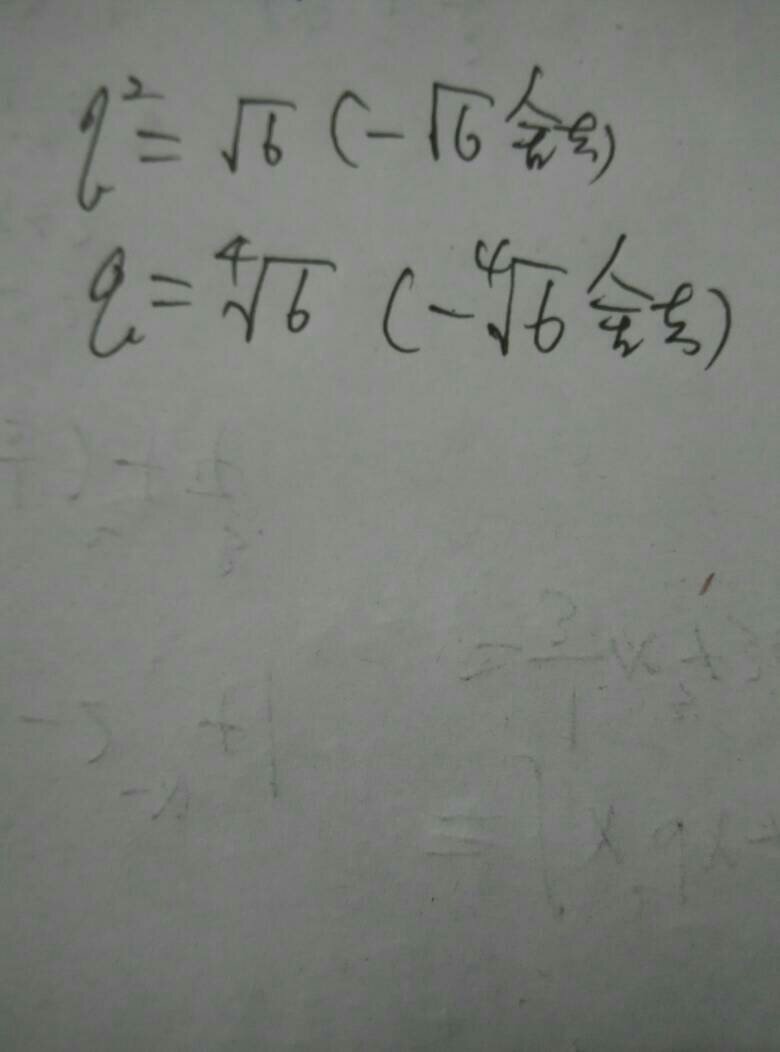 q² = √6 (-√6 舍去)
q = ⁴√6 (-⁴√6 舍去)